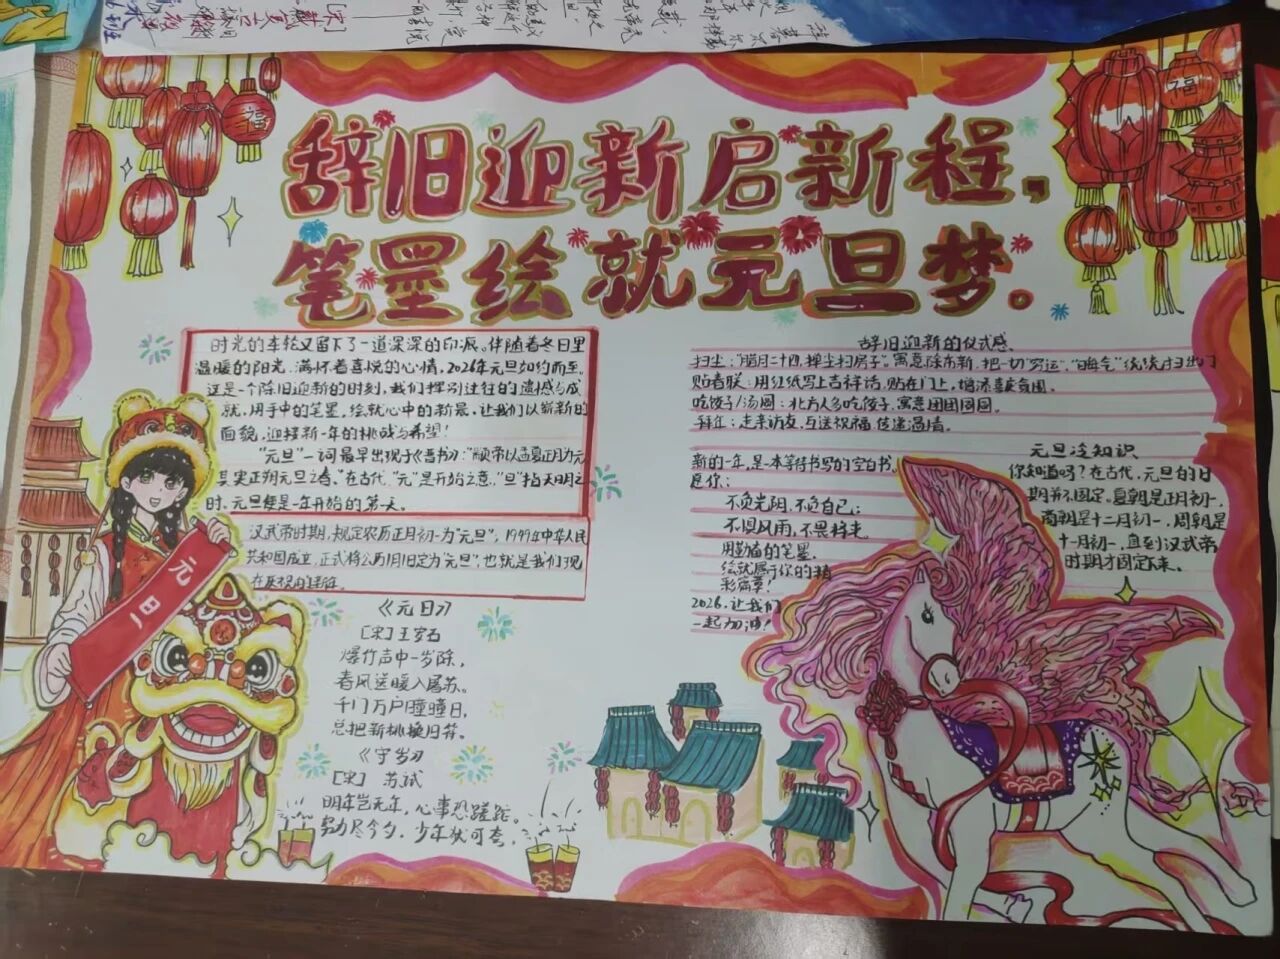 辞旧迎新启新程，
笔墨绘就元旦梦。
福
福
时光的车轮又留下了一道深深的印痕。伴随着冬日里
温暖的阳光，满怀着喜悦的心情，2026年元旦如约而至。
这是一个除旧迎新的时刻，我们挥别过往的遗憾与成
就，用手中的笔墨，绘就心中的新景，让我们以崭新的
面貌，迎接新一年的挑战与希望！
"元旦"一词最早出现于《晋书》："颛帝以孟夏正月为元
其实正朔元旦之春。"在古代，"元"是开始之意，"旦"指天明之
时，元旦便是一年开始的第一天。
汉武帝时期，规定农历正月初一为"元旦"，1949年中华人民
共和国成立，正式将公历1月1日定为"元旦"，也就是我们现
在
元旦
《元日》
［宋］王安石
爆竹声中一岁除，
春风送暖入屠苏。
千门万户瞳瞳日，
总把新桃换旧符。
《守岁》
［宋］ 苏轼
明年岂无年，心事恐蹉跎。
努力尽今夕，少年犹可夸。
辞旧迎新的仪式感
扫尘："腊月二十四，掸尘扫房子"寓意除布新，把一切"穷运""晦气"统统扫出门
贴春联：用红纸写上吉祥话，贴在门上，增添喜庆氛围。
吃饺子/汤圆：北方人多吃饺子，寓意团团圆圆。
拜年：走亲访友，互送祝福，传递温情。
新的一年，是一本等待书写的空白书。
愿你：
不负光阴，不负自己；
不惧风雨，不畏将来。
用勤奋的笔墨，
绘就属于你的精
彩篇章！
2026，让我们
一起加油！
元旦冷知识
你知道吗？在古代，元旦的日
期并不固定。夏朝是正月初一，
商朝是十二月初一，周朝是
十一月初一，直到汉武帝
时期才固定下来。